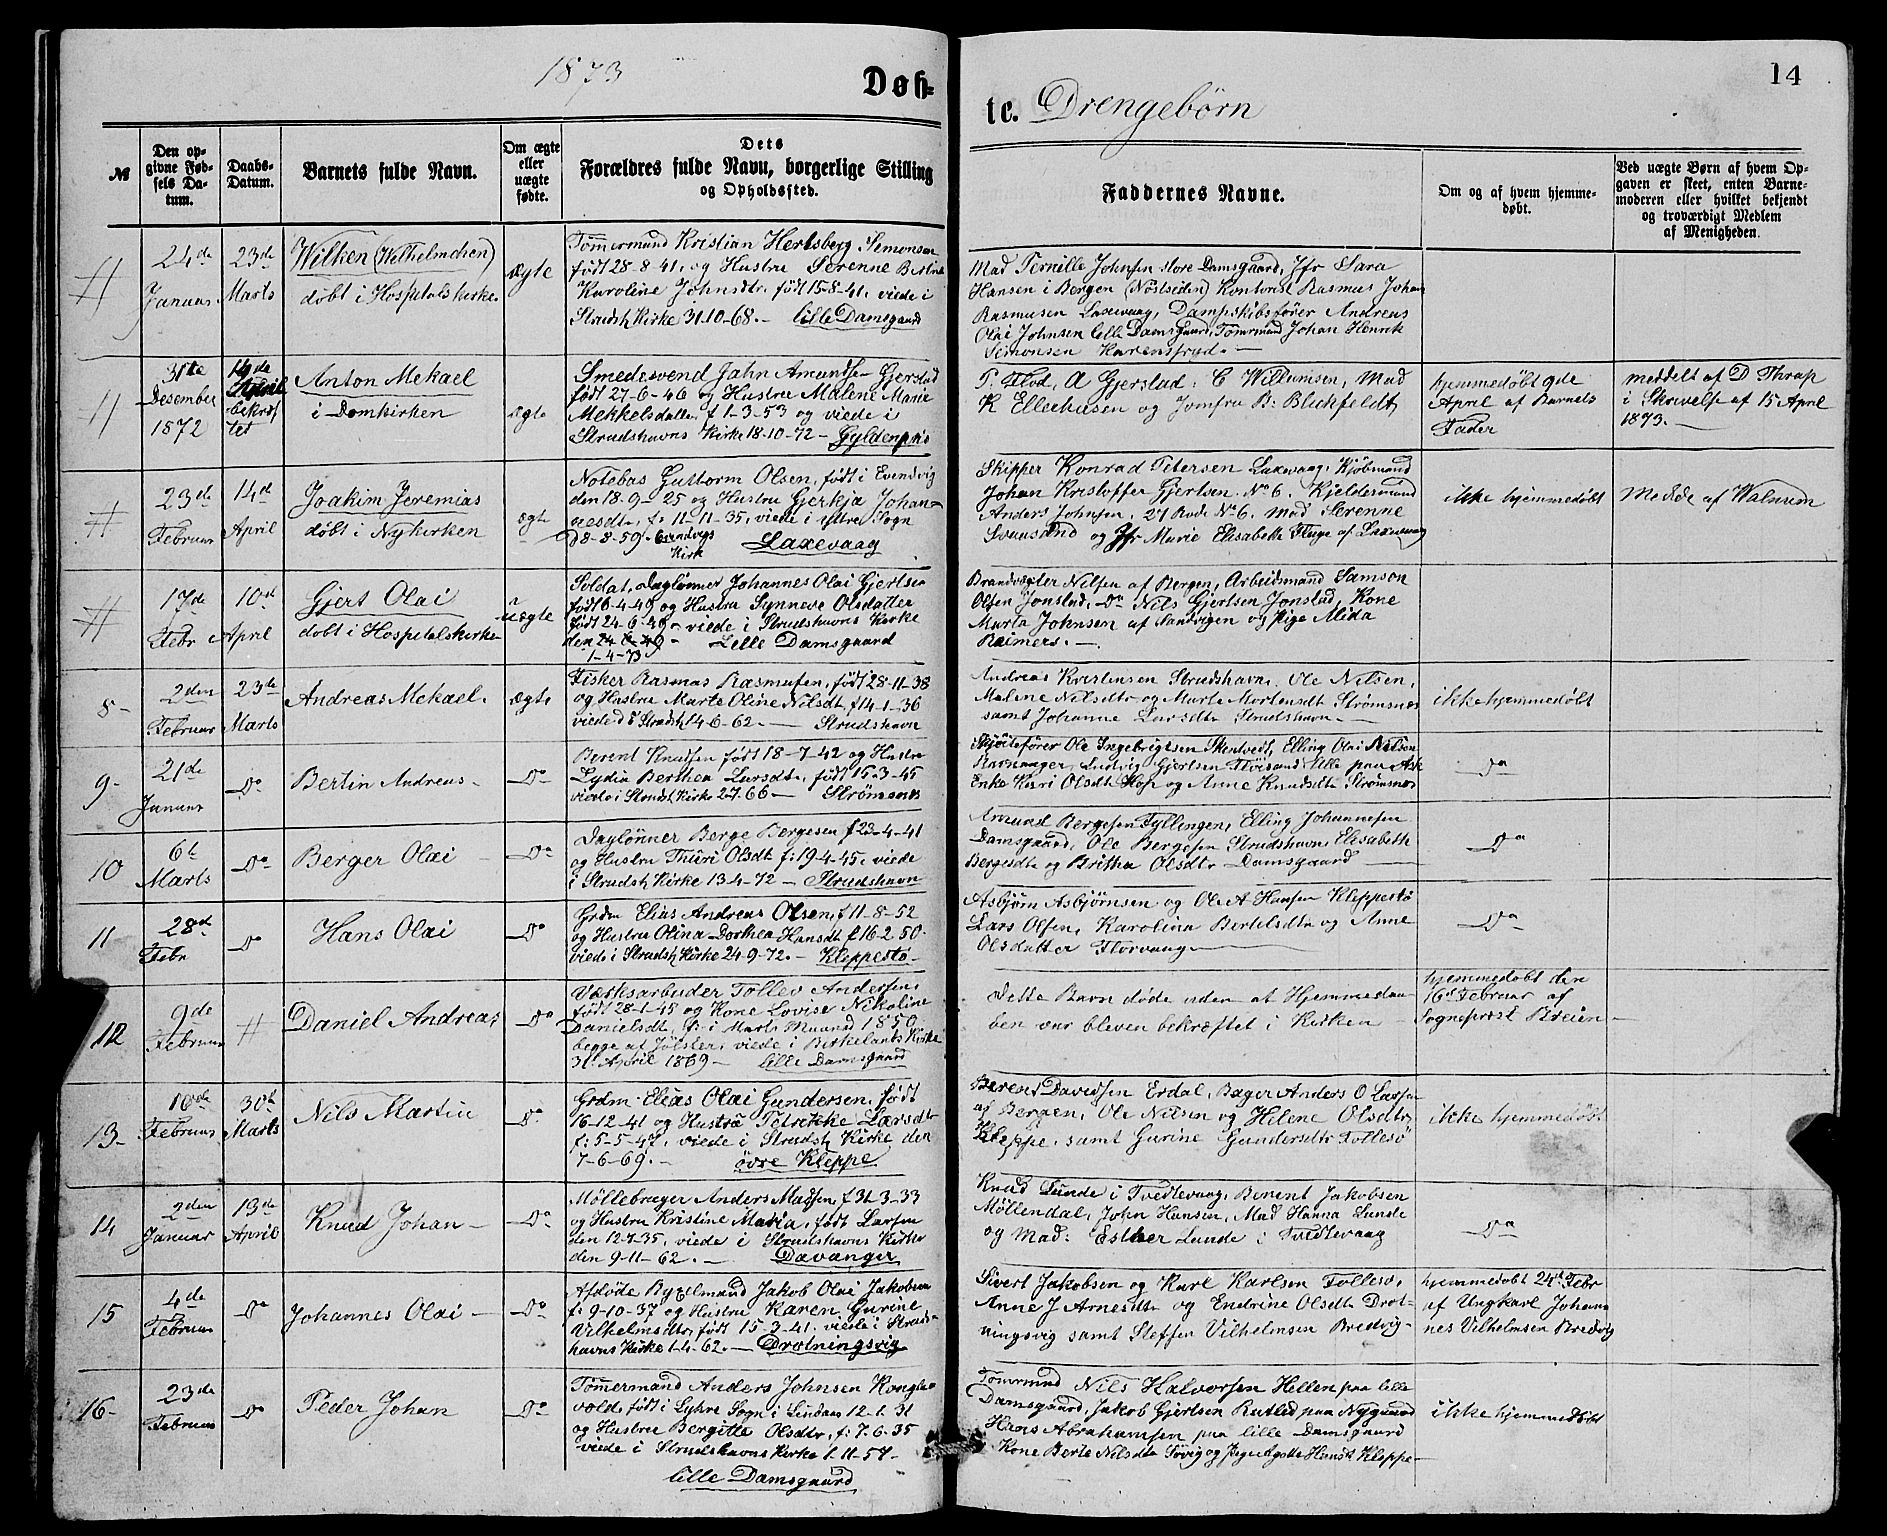 1873
Døb-
te. Drengebörn
14
№
Den op-
givne Fød-
sels Da-
tum.
Daabs-
Datum.
Barnets fulde Navn.
Om ægte
eller
uægte
fødte.
Dets
Forældres fulde Navn, borgerlige Stilling
og Opholdssted.
Faddernes Navne.
Om og af hvem hjemme-
døbt.
Ved uægte Børn af hvem Op-
gaven er skeet, enten Barne-
moderen eller hvilket bekjendt
og troværdigt Medlem
af Menigheden.
24de
Januar
23de
Marts
Wilken (Wilhelmchen)
döbt i Hospitalskirke
ægte
Tømmermand Kristian Hertsberg Simonsen
født 28-8-41, og Hustru Serenne Bertine
Karoline Johnsdtr. født 15-8-41, viede i
Strudsh Kirke 31-10-68.— Lille Damsgaard
Mad Pernille Johnsen store Damsgaard, Jfr Sara
Hansen i Bergen (Nöstseiden) Kontorist Rasmus Johan
Rasmusen Laxevaag, Dampskibsfører Andreas
Olai Johnsen Lille Damsgaard, Tömrmand Johan Henrik
Simonsen
31te
Desember
1872
14de
April
bekræf
tet
Anton Mekael
i Domkirken
ægte
Smedesvend Jahn Amundsen Gjerstad
født 27-6-46 og Hustru Malene Marie
Mekkelsdatter f 1-3-53 og viede i
Strudshavns Kirke 18-10-72 — Gyldenpris
A Gjerstad, C Willumsen, Mad
K Ellerhusen og Jomfru B: Blickfeldt
hjemmedøbt 9de
April af Barnets
Fader
meddelt af D Thrap
i Skrivelse af 15 April
1873.—
23de
Februar
14de
April
Joakim Jeremias
døbt i Nykirken
ægte
Guttorm Olsen, født i Evendvig
den 18-9-25 og Hustru Gjertja Johan-
nesdtr, f: 11-11-35, viede i yttre Sogn
D 8-8-59. Evendvigs
Kirk Laxevaag
Skipper Konrad Petersen Laxevaag, Kjöbmand
Johan Kristoffer Gjertsen. No 6. Kjeldermand
Anders Johnsen, 21 Rode No 6. Mad Serenne
Svaasand og Jfr Marie Elisabeth Fluge af Laxevaag
ikke hjemmedøbt
17de
Febr
10de
April
Gjert Olai
døbt i Hospitalskirke
uægte
Soldat, Daglønner Johannes Olai Gjertsen
født 6-4-49 og Hustru Synneve Olsdatter
født 24-6-48 viede i Strudshavns Kirke
den 24-6-49 —
1-4-73
Lille Damsgaard
Brandvægter Nilsen af Bergen, Arbeidsmand Samson
Olsen Jonstad, Do Nils Gjertsen Jonstad, Kone
Marta Johnsen af Sandvigen og Pige Alida
Reimers.—
8-
2den
Februar
23de
Marts
Andreas Mekael.
ægte
Fisker Rasmus Rasmusen, født 28-11-38
og Hustru Marte Oline Nilsdt, f 14-1-36
viede D i Strudsh 14-6-62.— Strudshavn
Andreas Kristensen Strudshavn, Ole Nilsen,
Malene Nilsdtr og Marte Mortensdt Strømsnes
samt Johanne Larsdtr Strudshavn.—
ikke hjemmedøbt
9-
21de
Januar
Do
Bertin Andreas-
Do
Berent Knudsen født 18-7-42 og Hustru
Lydia Berthea Larsdtr, født 15-3-45
viede i Strudsh Kirke 2-7-66— Strømsnes
Skjöitefører Ole Ingebrigtsen Skentvedt, Elling Olai Nilsen
Ludvig Gjertsen alle paa Ask
Enke Kari Olsdtr Hop og Anne Knudsdtr Strømsnes
Do
10
6te
Marts
Do
Berger Olai
Do
Daglönner Berge Bergesen f 23-4-41
og Hustru Thuri Olsdtr f: 19-4-45, viede
i Strudsh Kirke 13-4-72 — Strudshavn
Amund Bergesen Fyllingen, Elling Johannesen
Damsgaard, Ole Bergesen Strudshavn, Elisabeth
Bergesdtr og Britha Olsdtr Damsgaard
Do
11
28de
Febr
Do
Hans Olai
Do
Grdm Elias Andreas Olsen, f 11-8-52
og Hustru Olina Dorthea Hansdt f 16-2-50.
viede i Strudsh Kirke 24-9-72.— Kleppestø
Asbjørn Asbjørnsen og Ole A Hansen Kleppestø
Lars Olsen, Karolina Bertelsdtr og Anne
Olsdatter Florvaag
Do
12
9de
Februar
Daniel Andreas
Do
Værksarbeider Tollev Andersen,
født 28-1-45 og Kone Lovise Nikoline
Danielsdt, f: i Marts Maaned 1850.
begge af Jölster, viede i Birkelands Kirke
3te April 1869— Lille Damsgaard
Dette Barn døde uden at Hjemmedaa-
ben var bleven bekræftet i Kirken
hjemmedøbt den
16de Februar af
Sogneprest Breien-
13-
10de
Februar
30te
Marts
Nils Martin
Do
Grdm Elias Olai Gundersen, født
16-12-41 og Hustru Petrikke Larsdtr
f: 5-5-47, viede i Strudsh Kirke den
7-6-69.— övre Kleppe
Berent Davidsen Erdal, Bager Anders O Larsen
af Bergen, Ole Nilsen og Helene Olsdtr,
Kleppe, samt Gurine Gundersdtr Follesö
ikke hjemmedøbt
14
2den
Januar
13de
April
Knud Johan-
Do
Møllebryger Anders Madsen, f 31-3-33
og Hustru Kristine Maria, født Larsen
den 12-7-35, viede i Strudshavns Kirke
den 9-11-62.— Davanger
Knud Lunde i Tvedtevaag, Berent Jakobsen
Möllendal, John Hansen, Mad Hanna Lunde
og Mad: Esther Lunde i Tvedtevaag
Do
15
4de
Februar
Do
Johannes Olai-
Do
Afdöde Bygelmand Jakob Olai Jakobsen
f: 9-10-37 og Hustru Karen Gurine
Vilhelmsdtr, født 15-3-41, viede i Struds-
havns Kirke 1-4-62.— Drotningsvig
Sivert Jakobsen og Karl Karlsen Follesö,
Anne J Arnesdtr og Endrine Olsdtr Drot-
ningsvig samt Steffen Vilhelmsen Bredvig-
hjemmedøbt 24de Febr
af Ungkarl Johan
nes Vilhelmsen Bredvig
16-
23de
Februar
Do
Peder Johan
Do
Tömmermand Anders Johnsen Kongle-
vold, født i Lyhre Sogn i Lindaas 12-1-31
og Hustru Bergitte Olsdtr, f: 7-6-35
viede i Strudshavns Kirke 1-11-57-
Lille Damsgaard
Tömrmand Nils Halvorsen Hellen paa lille
Damsgaard, Jakob Gjertsen Rutled paa Nygaard
Hans Abrahamsen paa lille Damsgaard
Kone Berte Nilsdtr Søvig og Pige Agathe Hansdt Kleppe-
ikke hjemmedøbt